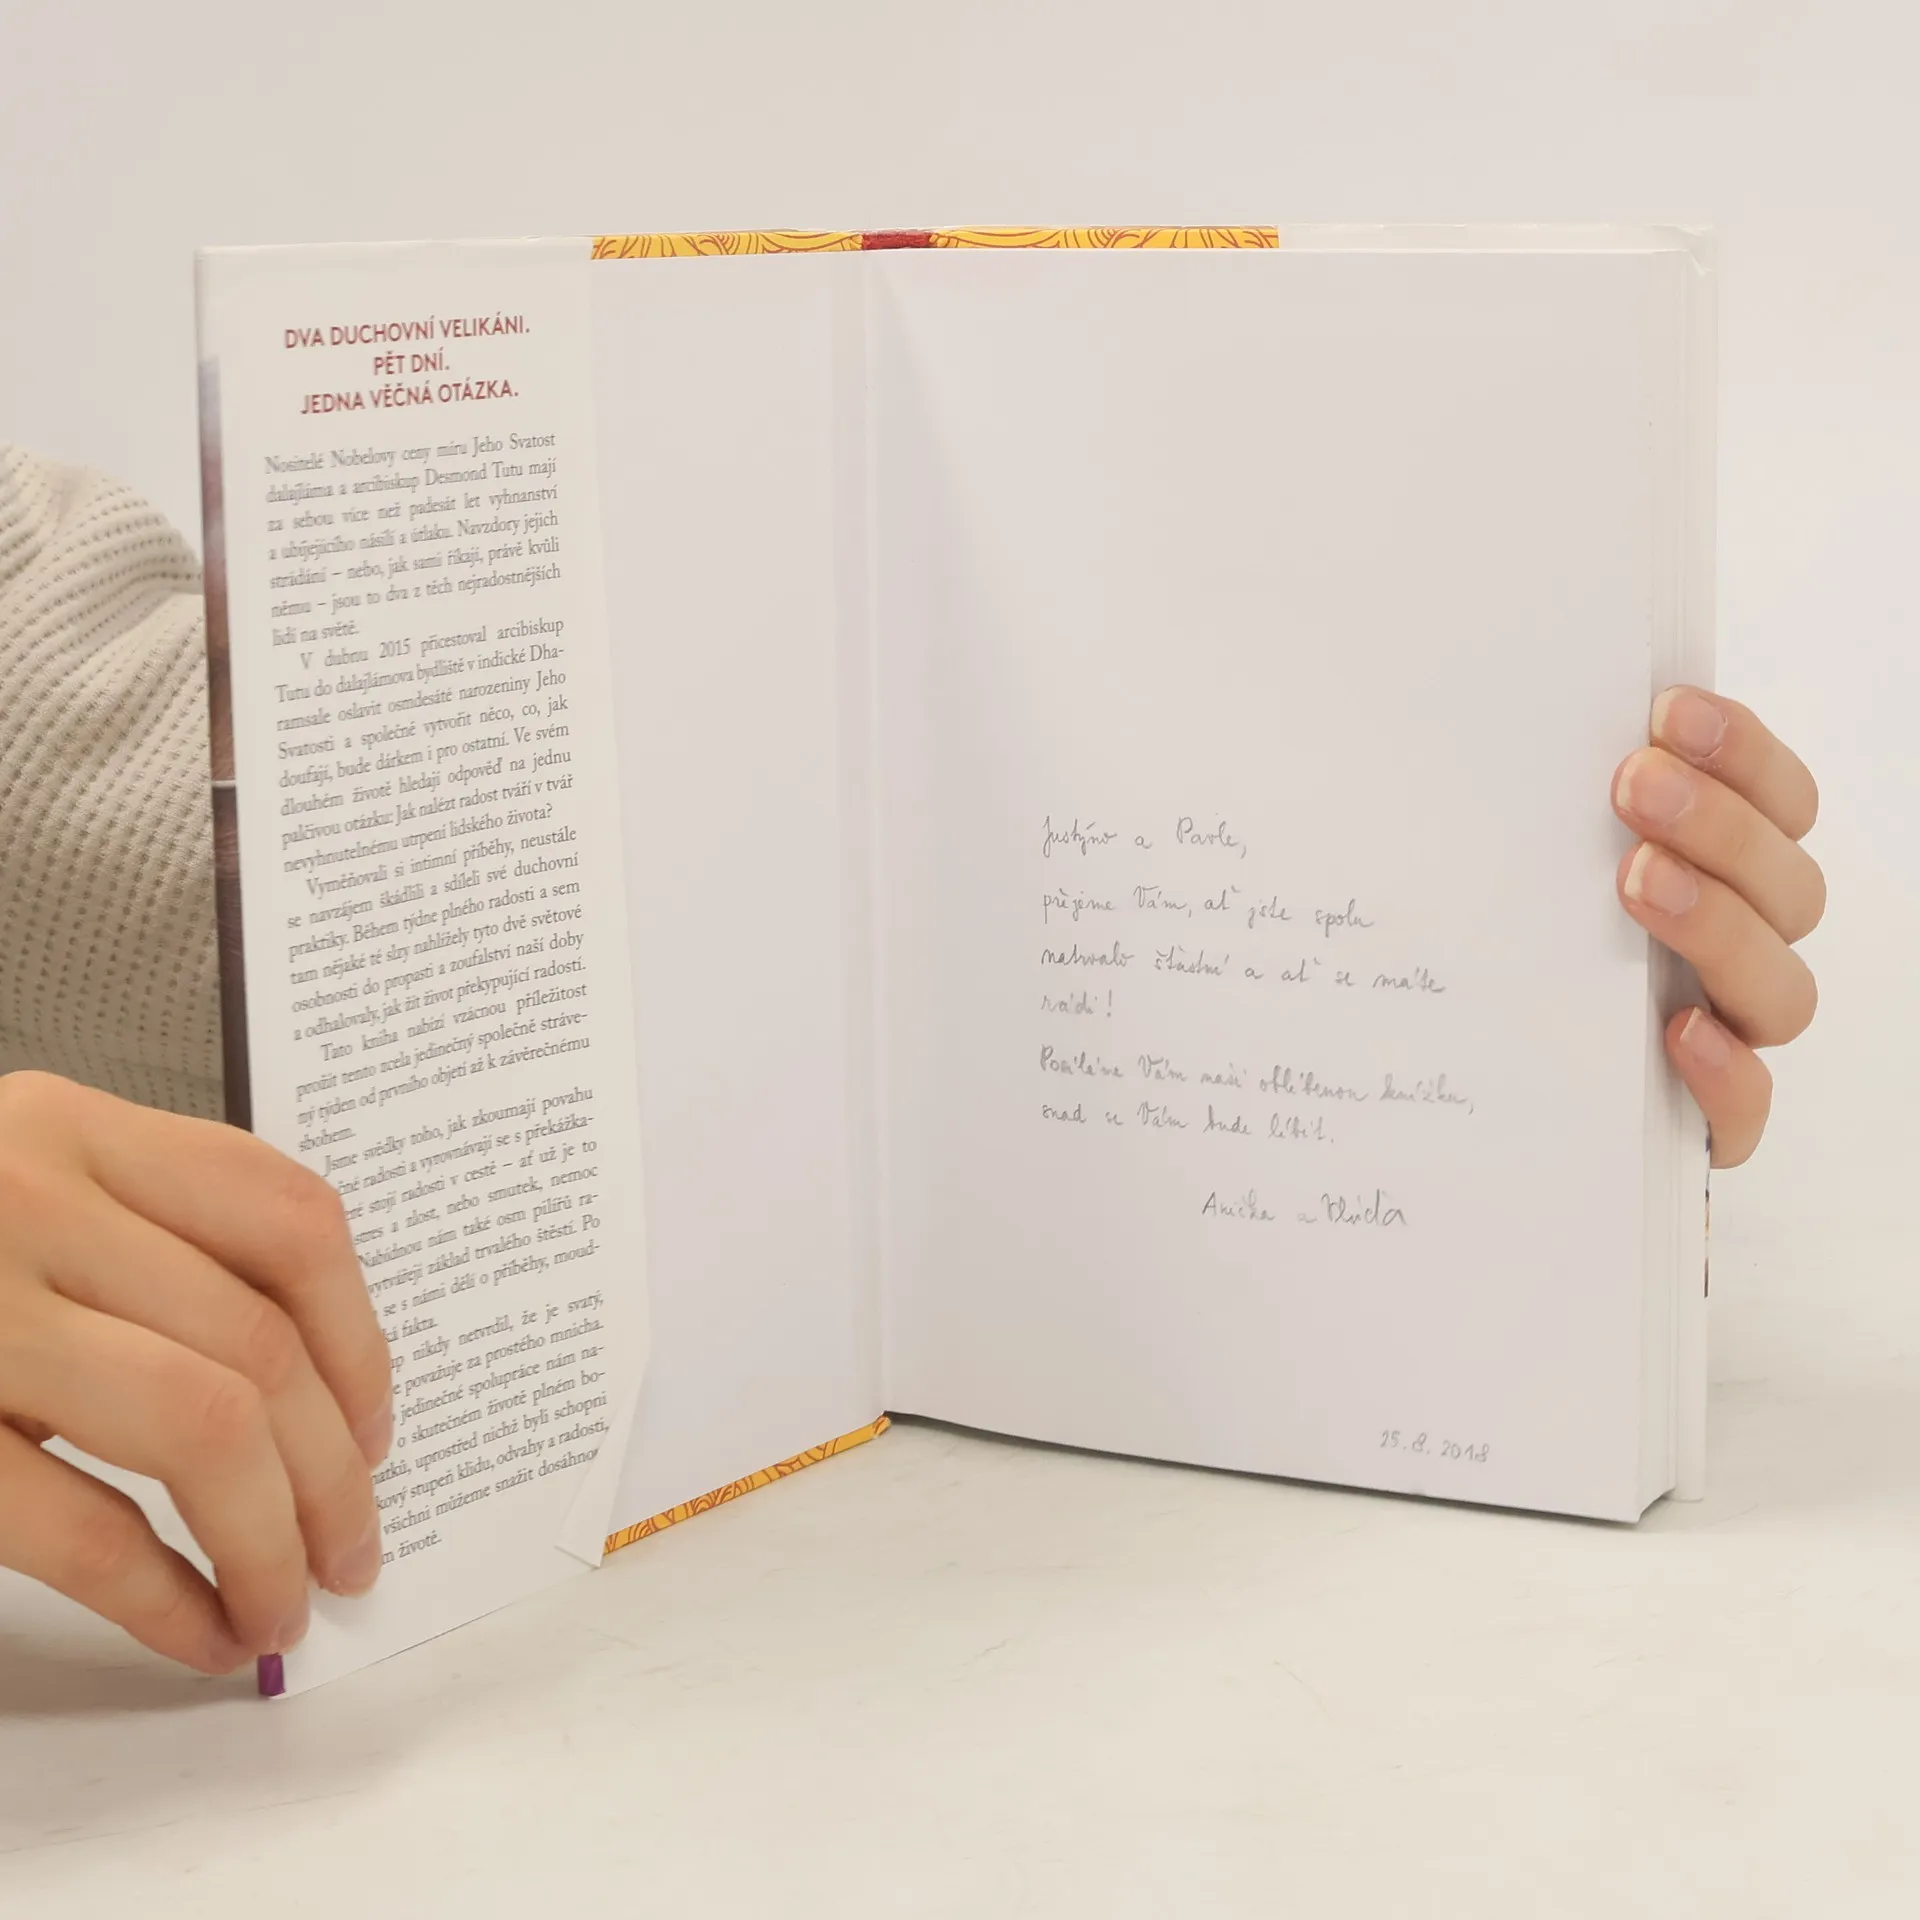 DVA DUCHOVNÍ VELIKÁNI.
PĚT DNÍ.
JEDNA VĚČNÁ OTÁZKA.
Nositelé Nobelovy ceny míru Jeho Svatost
dalajláma a arcibiskup Desmond Tutu mají
za sebou více než padesát let vyhnanství
a ubíjejícího násilí a útlaku. Navzdory jejich
strádání – nebo, jak sami říkají, právě kvůli
němu – jsou to dva z těch nejradostnějších
lidí na světě.
V dubnu 2015 přicestoval arcibiskup
Tutu do dalajlámova bydliště v indické Dha-
ramsale oslavit osmdesáté narozeniny Jeho
Svatosti a společně vytvořit něco, co, jak
doufají, bude dárkem i pro ostatní. Ve svém
dlouhém životě hledají odpověď na jednu
palčivou otázku: Jak nalézt radost tváří v tvář
nevyhnutelnému utrpení lidského života?
Vyměňovali si intimní příběhy, neustále
se navzájem škádlili a sdíleli své duchovní
praktiky. Během týdne plného radosti a sem
tam nějaké té slzy nahlížely tyto dvě světové
osobnosti do propasti a zoufalství naší doby
a odhalovaly, jak žít život překypující radostí.
Tato kniha nabízí vzácnou příležitost
prožít tento zcela jedinečný společně stráve-
ný týden od prvního objetí až k závěrečnému
sbohem.
Jsme svědky toho, jak zkoumají povahu
čné radosti a vyrovnávají se s překážka-
eré stojí radosti v cestě – ať už je to
stres a zlost, nebo smutek, nemoc
Nabídnou nám také osm pilířů ra-
vytvářejí základ trvalého štěstí. Po
se s námi dělí o příběhy, moud-
ká fakta.
up nikdy netvrdil, že je svatý,
e považuje za prostého mnicha.
jedinečné spolupráce nám na-
o skutečném životě plném bo-
natků, uprostřed nichž byli schopni
kový stupeň klidu, odvahy a radosti,
všichni můžeme snažit dosáhnou
m životě.
Justýno a Pavle,
přejeme Vám, ať jste spolu
natrvalo šťastní a ať se máte
rádi!
Posíláme Vám naši oblíbenou knížku,
snad se Vám bude líbit.
Anička a Vláďa
25.8.2018